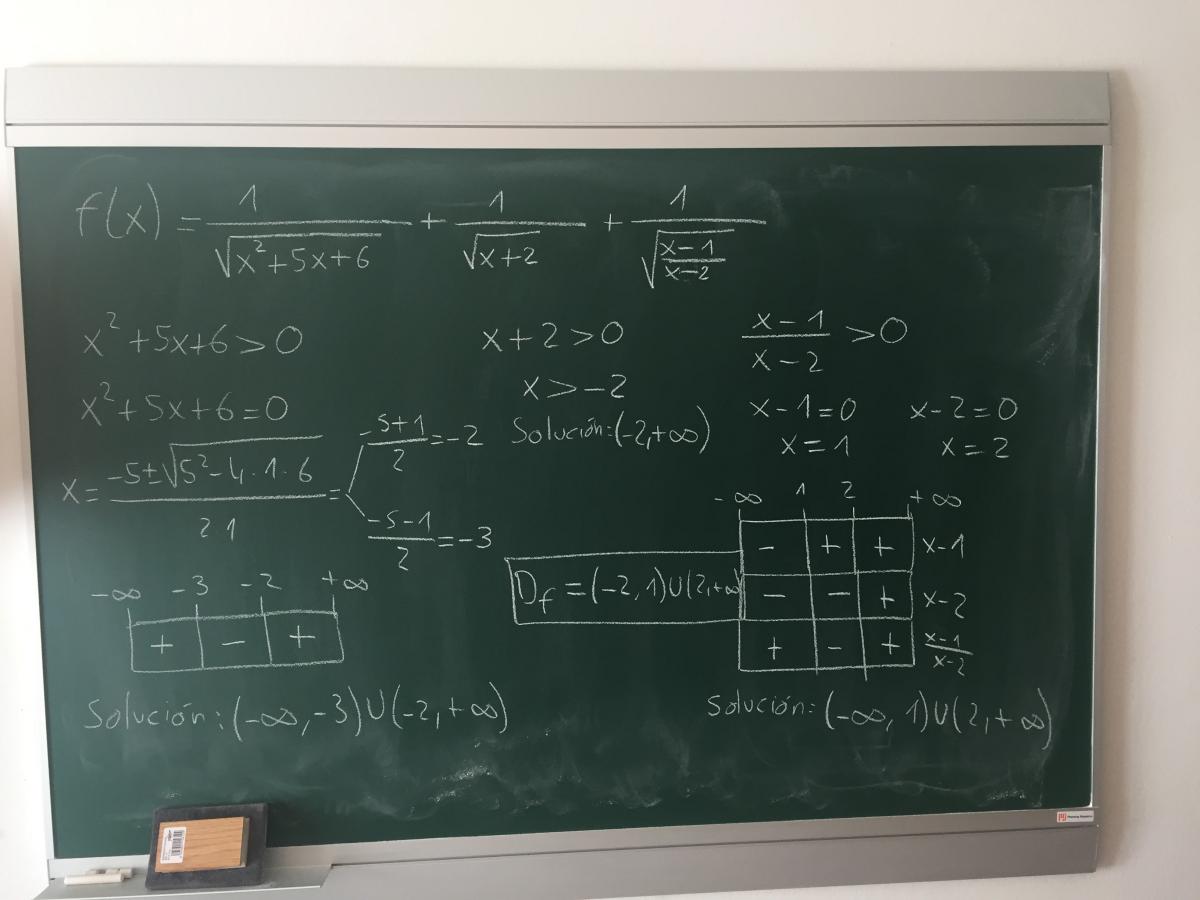 f(x) = 1/√(x²+5x+6) + 1/√(x+2) + 1/√((x-1)/(x-2))
x²+5x+6>0
x²+5x+6=0
x = (-5±√(5²-4·1·6))/(2 1) =
(-5+1)/2 = -2
(-5-1)/2 = -3
-∞ -3 -2 +∞
+ - +
Solución: (-∞,-3)∪(-2,+∞)
x+2>0
x>-2
Solución: (-2,+∞)
(x-1)/(x-2) >0
x-1=0 x-2=0
x=1 x=2
-∞ 1 2 +∞
- + + x-1
- - + x-2
+ - + (x-1)/(x-2)
Solución: (-∞, 1)∪(2,+∞)
Df = (-2,1)∪(2,+∞